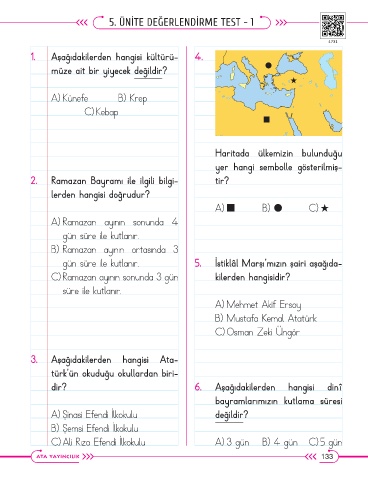 5. ÜNİTE DEĞERLENDİRME TEST - 1
1. Aşağıdakilerden hangisi kültürü-
müze ait bir yiyecek değildir?
A) Künefe B) Krep
C) Kebap
2. Ramazan Bayramı ile ilgili bilgi-
lerden hangisi doğrudur?
A) Ramazan ayının sonunda 4
gün süre ile kutlanır.
B) Ramazan ayının ortasında 3
gün süre ile kutlanır.
C) Ramazan ayının sonunda 3 gün
süre ile kutlanır.
3. Aşağıdakilerden hangisi Ata-
türk'ün okuduğu okullardan biri-
dir?
A) Şinasi Efendi İlkokulu
B) Şemsi Efendi İlkokulu
C) Ali Rıza Efendi İlkokulu
4.
Haritada ülkemizin bulunduğu
yer hangi sembolle gösterilmiş-
tir?
A) ■ B) ● C) ★
5. İstiklâl Marşı'mızın şairi aşağıda-
kilerden hangisidir?
A) Mehmet Akif Ersoy
B) Mustafa Kemal Atatürk
C) Osman Zeki Üngör
6. Aşağıdakilerden hangisi dinî
bayramlarımızın kutlama süresi
değildir?
A) 3 gün B) 4 gün C) 5 gün
ATA YAYINCILIK
133